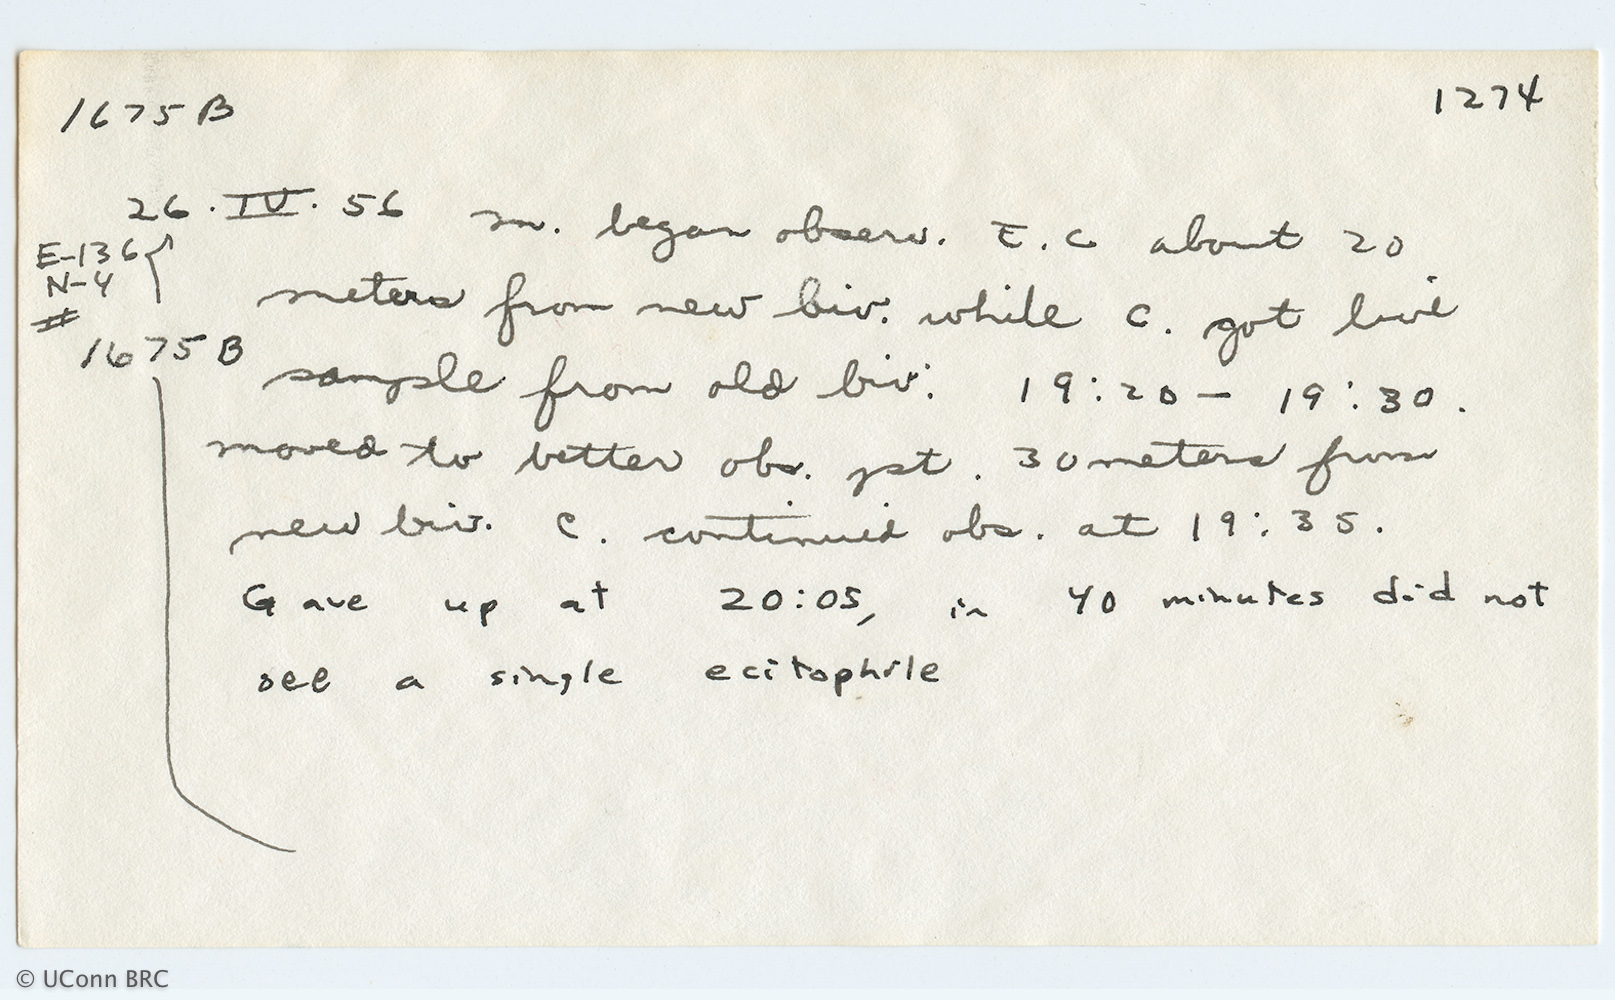 1675 B
1274
26 . IV . 56 m. began observ. E.C about 20
E-136
N-4
meters from new biv. while C. got live
#
1675 B
sample from old biv. 19:20 - 19:30.
moved to better obs. pst. 30 meters from
new biv. C. continued obs. at 19:35.
Gave up at 20:05, in 40 minutes did not
see a single ecitophile
© UConn BRC